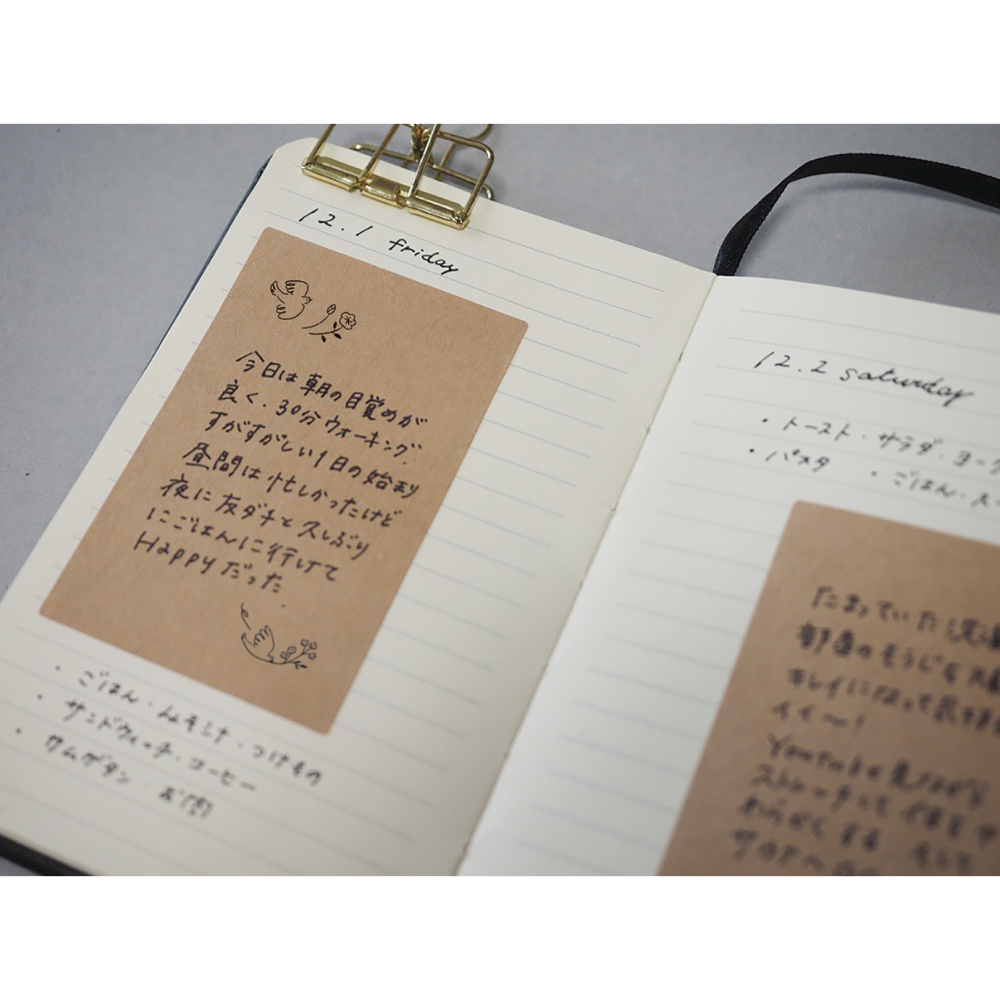 12.1 friday
今日は朝の目覚めが
良く、30分ウォーキング.
すがすがしい1日の始まり
昼間は忙しかったけど
夜に友ダチと久しぶり
にごはんに行けて
Happyだった.
・ごはん・みそシナ・つけもの
・サンドウィッチ・コーヒー
・サムゲタン・お酒
12.2 saturday
・トースト・サラダ・ヨーグ
・パスタ ・ごはん・
たまっていた洗濯
部屋のそうじも
キレイになって気持
イイ〜!
Youtubeを見ながら
ストレッチして体を